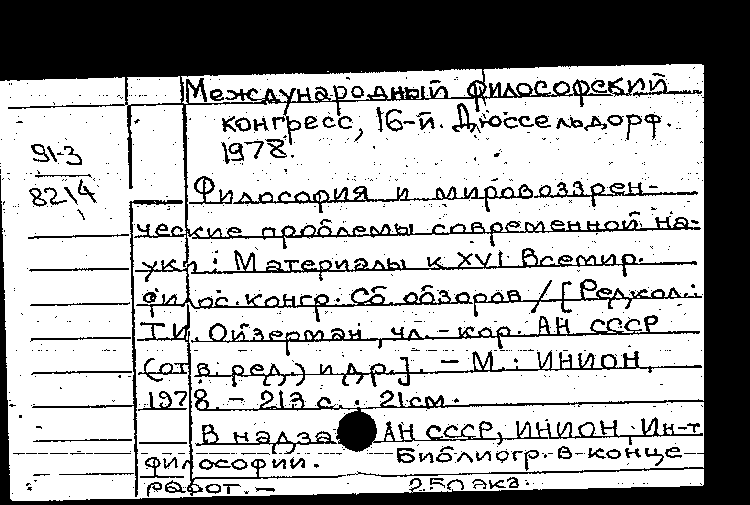 Международный философский
конгресс, 16-й. Дюссельдорф.
1978.
91-3
8214
Философия и мировоззрен-
ческие проблемы современной на-
уки : Материалы к XVI Всемир.
филос. конгр. Сб. обзоров / [Редкол.:
Т.И. Ойзерман, чл.-кор. АН СССР
(отв. ред.) и др.]. - М. : ИНИОН,
1978. - 213 с. ; 21 см.
В надзаг. АН СССР, ИНИОН, Ин-т
философии. Библиогр. в конце
работ. - 250 экз.